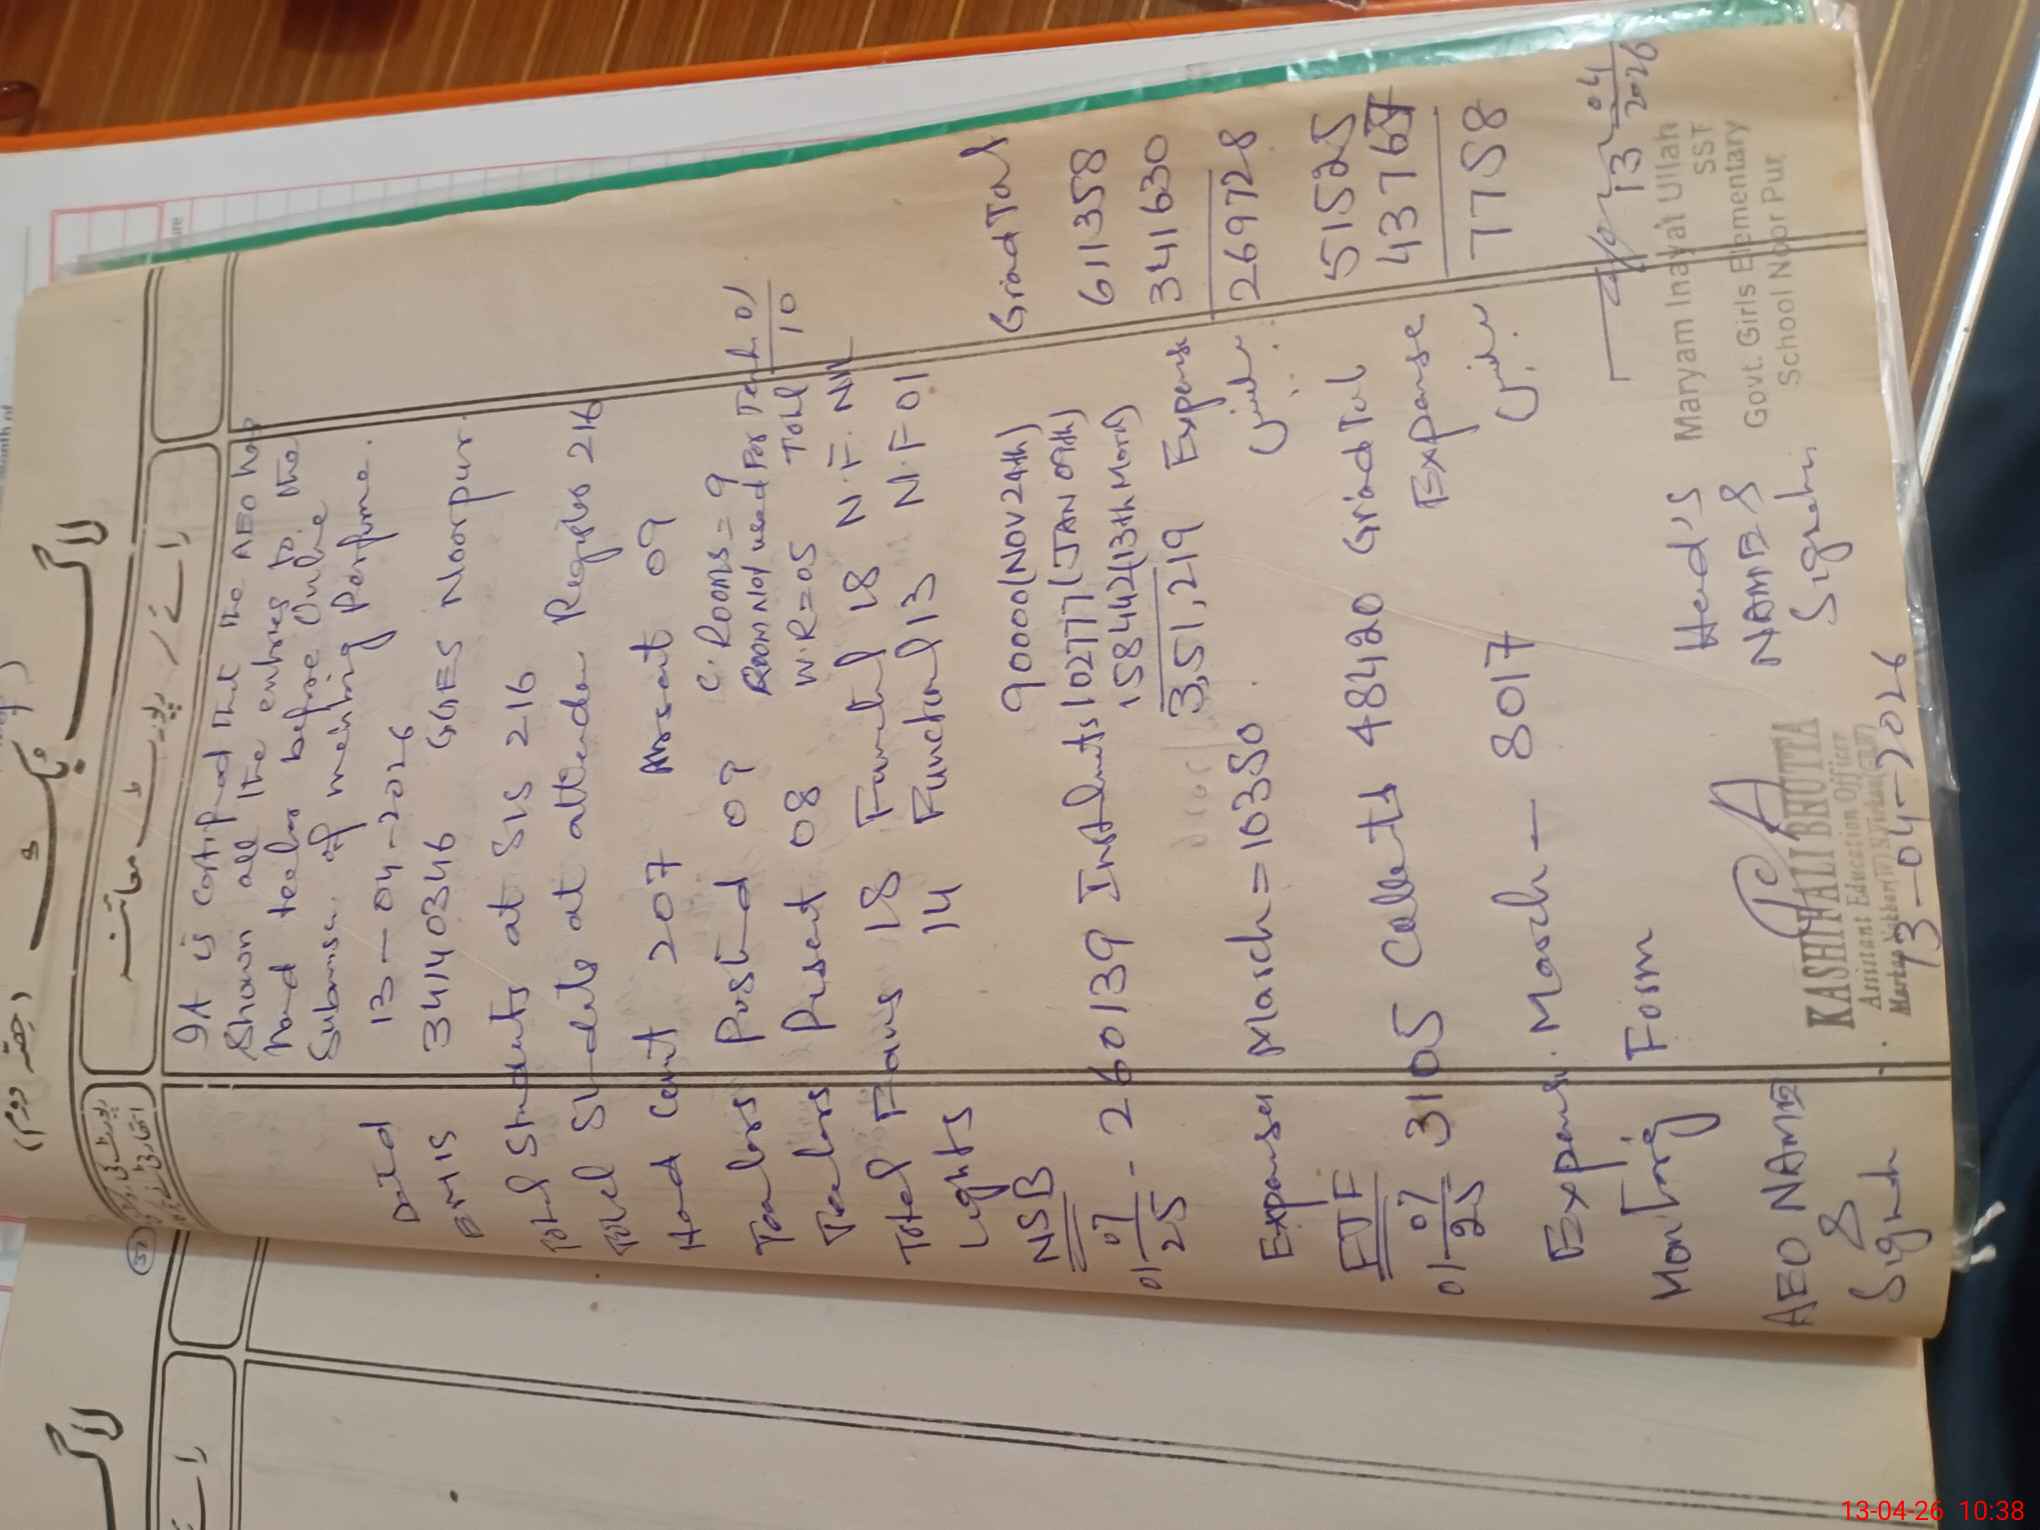 لاگ بک (حصہ دوم)
رائے / رپورٹ معائنہ
It is certified that the AEO has
Shown all the entries to the
head teacher before Online
Submission of meintring Porfuma.
Dated 13-04-2026
EMIS 34140346 GGES Noorpur.
Total Students at SIS 216
Total Students at attendan Register 216
Head Count 207 Absent 09
C.Rooms = 9
Teachers Postind 09 Room Not used For Teach 01
Teachers Present 08 W.R=05 Total 10
Total Fans 18 Functnl 18 N.F. Nil
Lights 14 Functional 13 N.F 01
NSB 90000(NOV 24th) Grand Total
01-07-25 - 260139 Instalments 102777(JAN 09th) 611358
158442(13th March) 341630
3,51,219 Expense
269728
Expenses March = 10380.
FTF
01-07-25 3105 Collects 48420 Grand Total 51525
Expense 4376
7758
Expens. March - 8017
Montring Form
Head's
NAME &
Signatu.
13 04 2026
Maryam Inayat Ullah
SST
Govt. Girls Elementary
School Noor Pur
AEO NAME
&
Signatu
KASHIF ALI BHUTTA
Assistant Education Officer
13-04-2026
لاگ
13-04-26 10:38